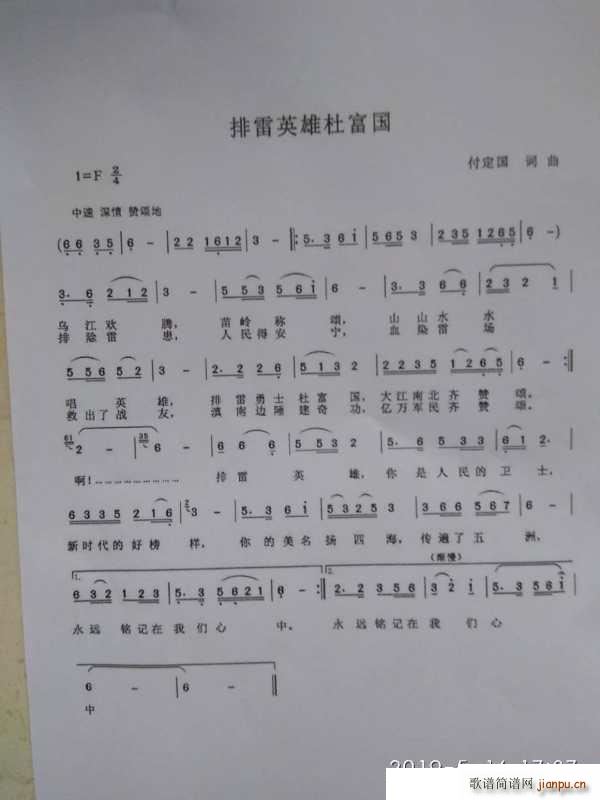 排雷英雄杜富国
付定国 词 曲
1=F 2/4
中速 深情 赞颂地
(6 6 3 5 | 6 - | 2 2 1 6 1 2 | 3 - |: 5. 3 6 i | 5 6 5 3 | 2 3 5 1 2 6 5 | 6 - )
3. 6 2 1 2 | 3 - | 5 5 3 5 6 i | 6 - | 3. 3 6 6 | 2 3 2 1
乌江欢 腾， 苗岭称 颂， 山山水 水
排除雷 患， 人民得安 宁， 血染雷 场
5 5 5 6 2 2 | 3 - | 2. 2 2 6 | 5 5 5 3 | 2 2 3 5 1 2 6 5 | 6 - :|
唱 英 雄， 排雷勇士杜富 国， 大江南北齐 赞 颂。
救出了战 友， 滇南边陲建奇 功， 亿万军民齐 赞 颂。
2 - | 6 - | 6 2 1 6 | 5 5 3 | 5. 6 | 1 2 3 5 | 6 1 2.
啊！……………… 排 雷 英 雄， 你 是 人民的 卫 士，
6 3 3 5 2 1 6 | 3 - | 5. 3 6 i | 5 3 2 5 3 | 3 6 6 5 6 7 | 6 -
新时代的好榜 样， 你的美名扬四 海， 传遍了五 洲，
(渐慢)
1.
6 3 2 1 2 3 | 5. 3 5 6 2 1 | 6 - :|
2.
2. 2 3 5 6 | 3 2 i | 5. 3 5 6 i
永远 铭记在我 们心 中。 永远铭记在我 们 心
6 - | 6 - ‖
中
2019-5-14 17:27
歌谱简谱网
jianpu.cn